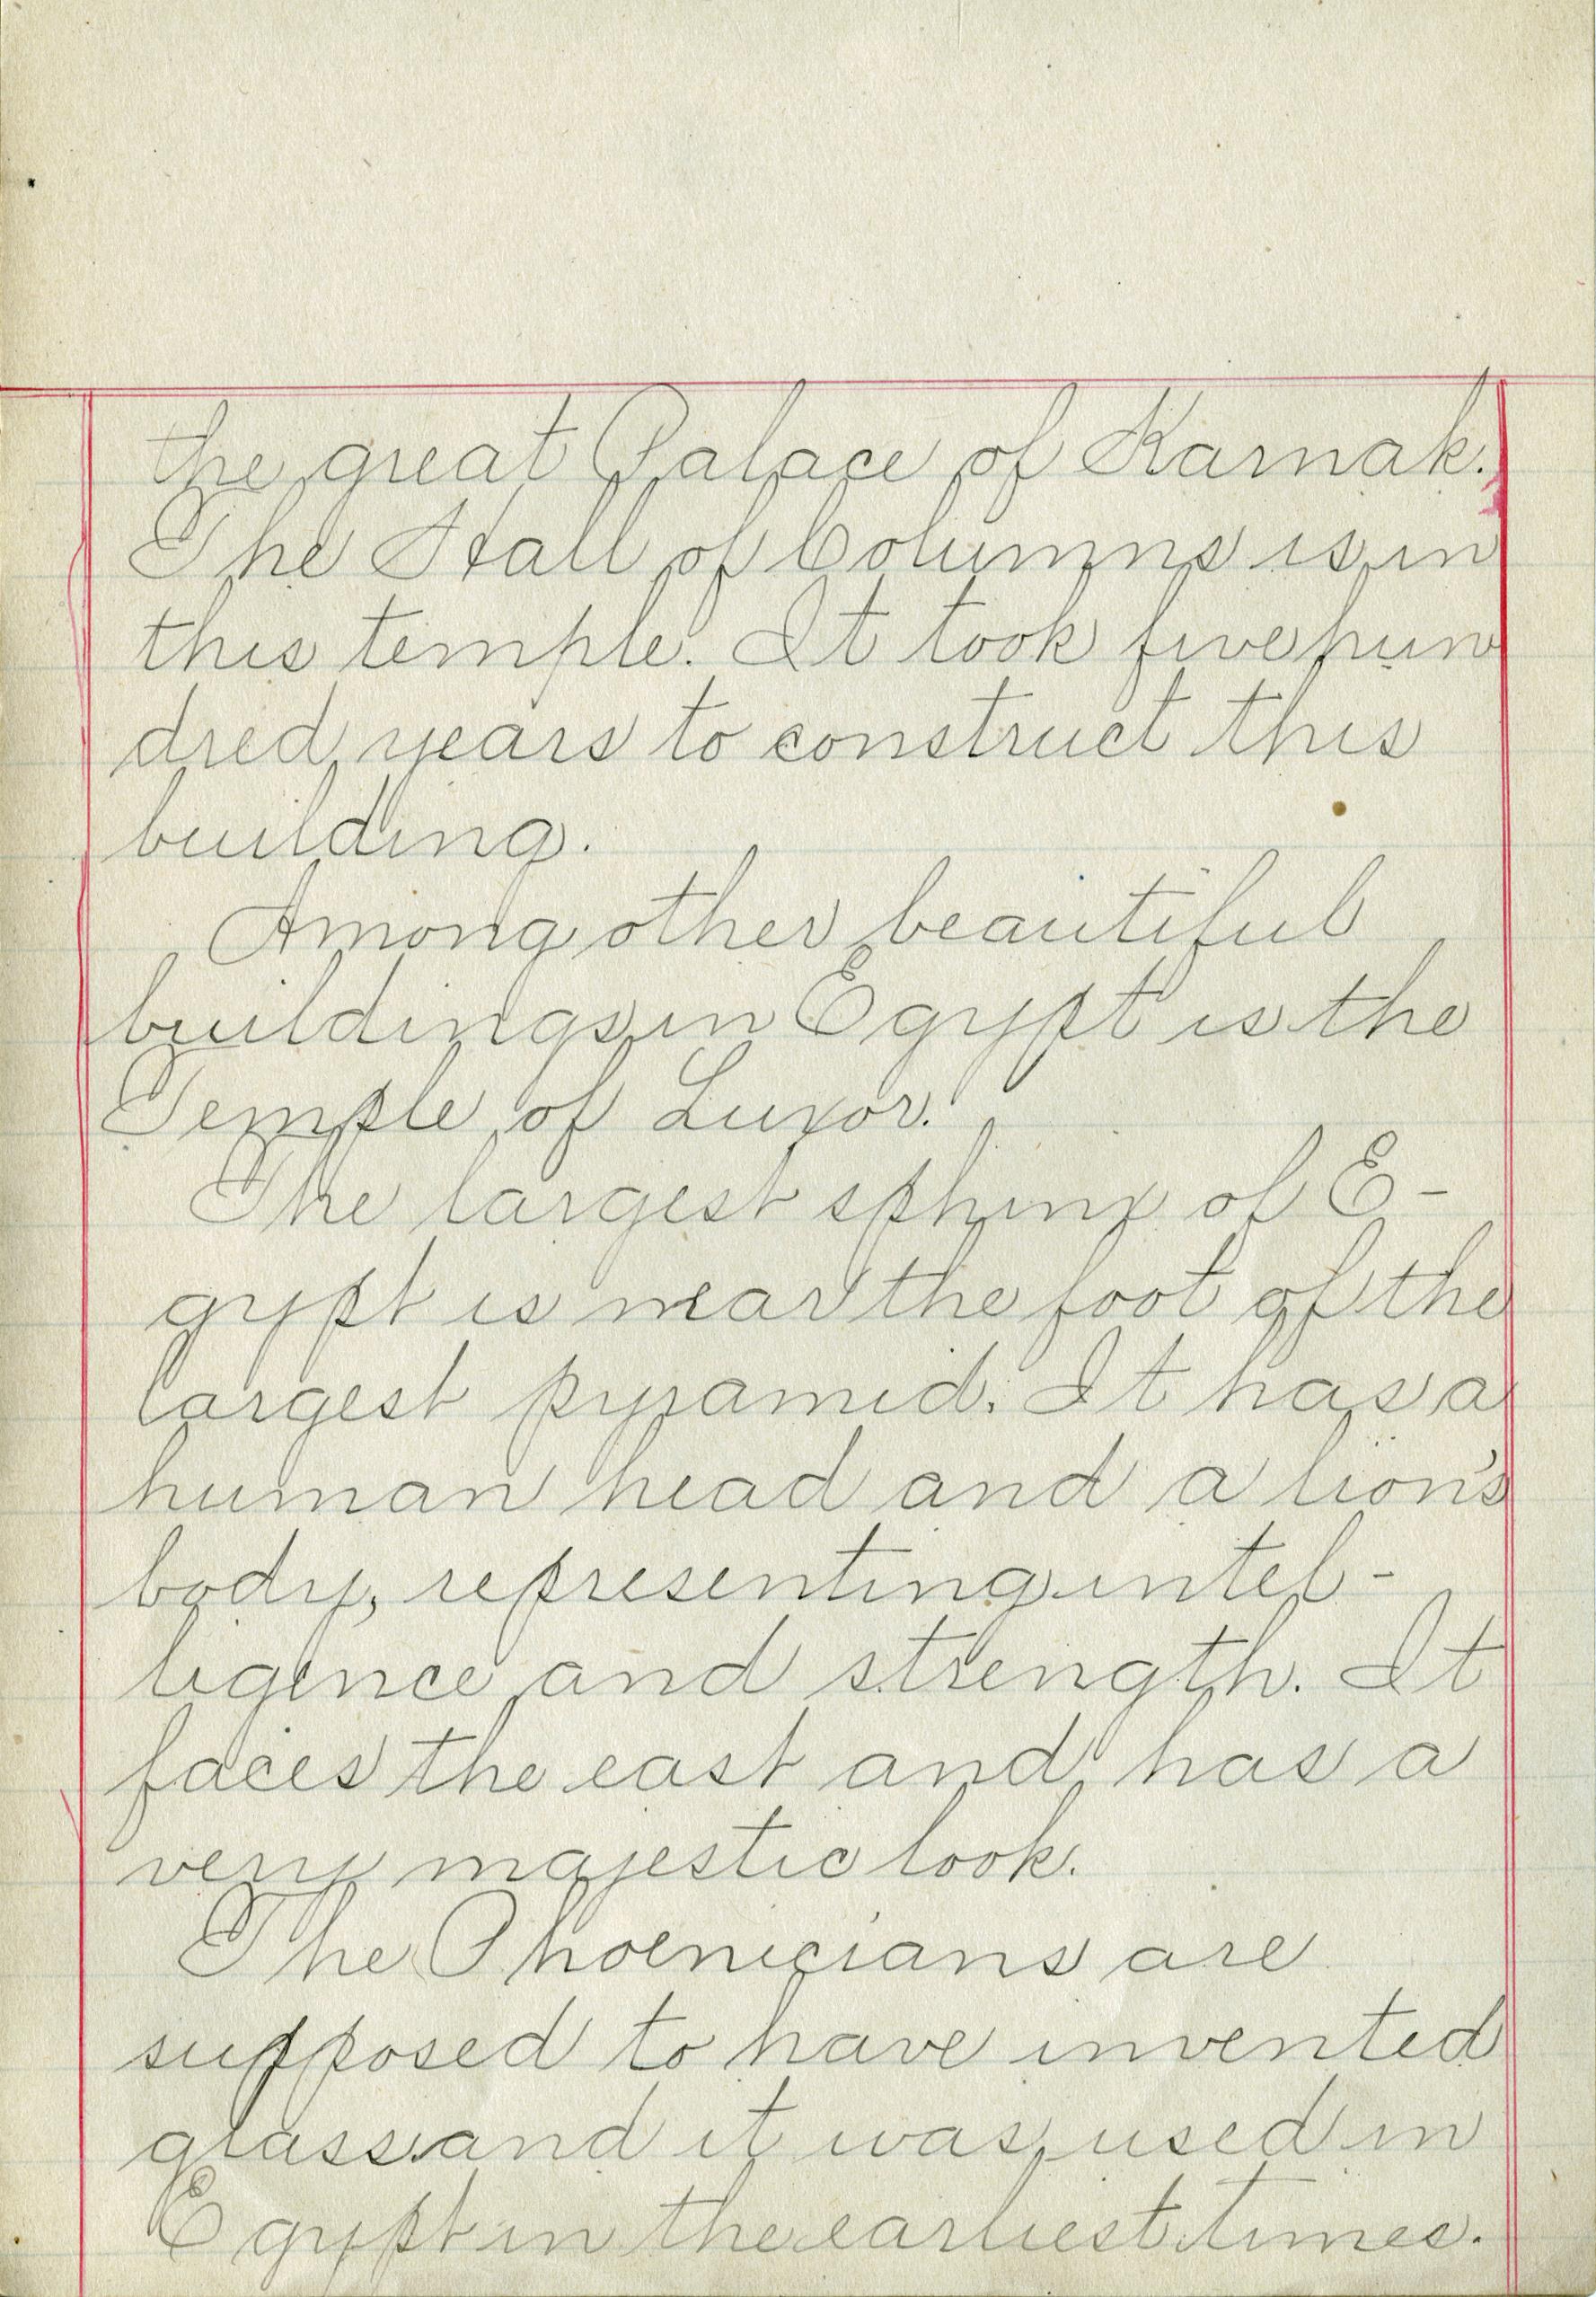 the great Palace of Karnak.
The Hall of Columns is in
this temple. It took five hun
dred years to construct this
building.
Among other beautiful
buildings in Egypt is the
Temple of Luxor.
The largest sphinx of E-
gypt is near the foot of the
largest pyramid. It has a
human head and a lion's
body, representing intel-
ligence and strength. It
faces the east and has a
very majestic look.
The Phoenicians are
supposed to have invented
glass and it was used in
Egypt in the earliest times.